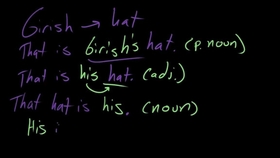 Girish → hat
That is Girish's hat. (p. noun)
That is his hat. (adj.)
That hat is his. (noun)
His